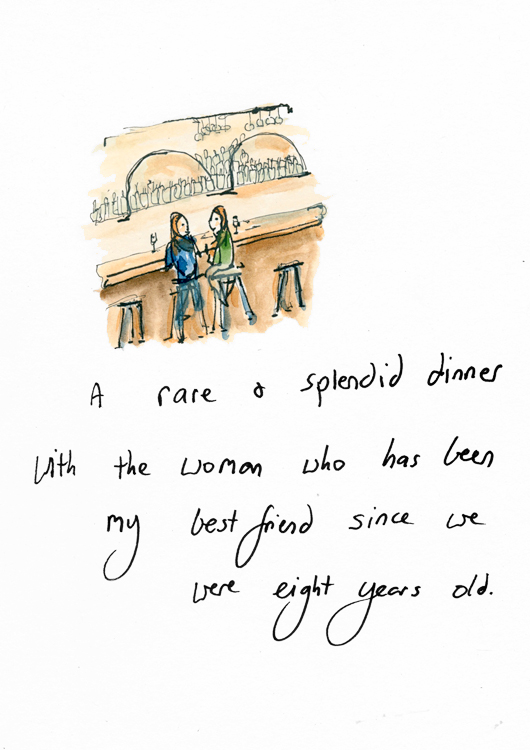 A rare & splendid dinner
with the woman who has been
my best friend since we
were eight years old.